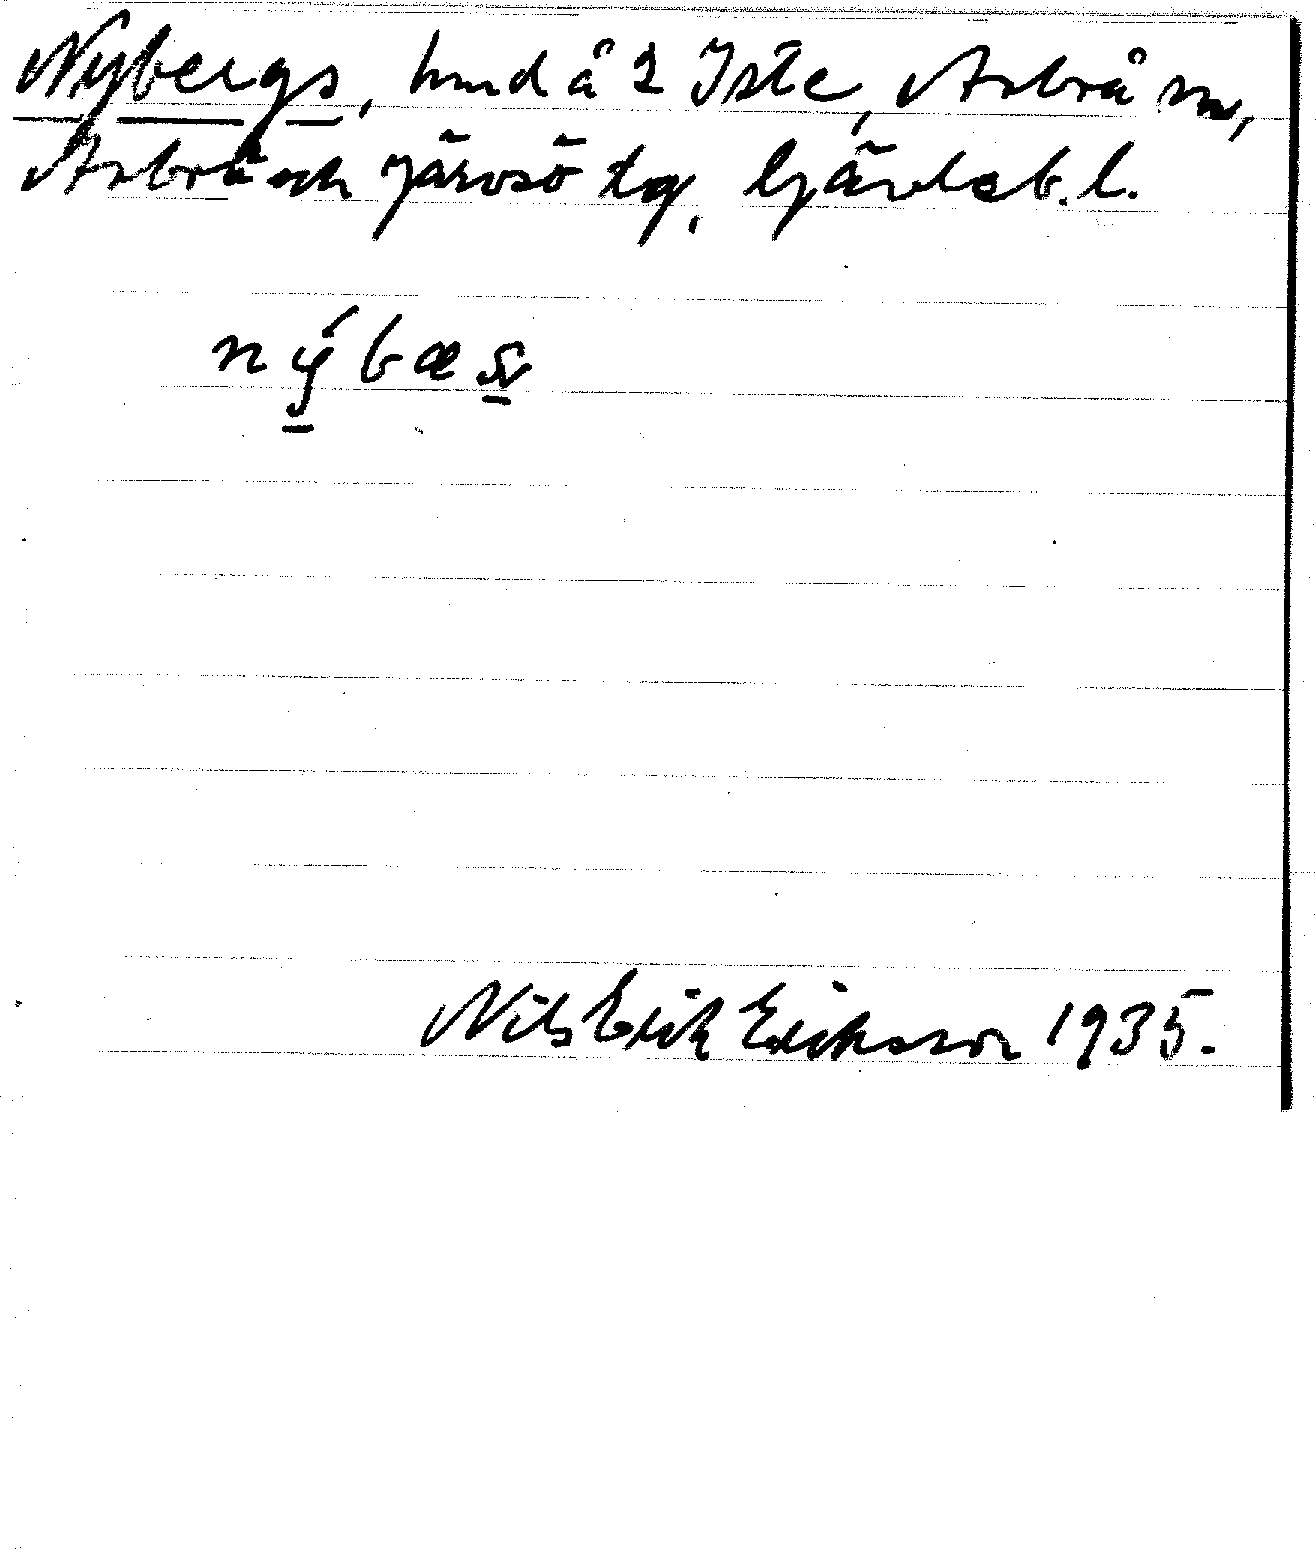 Nybergs, hmd å 2 Iste, Arbrå sn,
Arbrå och Järvsö tg, Gävleb. l.
nýbæʂ
Nils Erik Eriksson 1935.